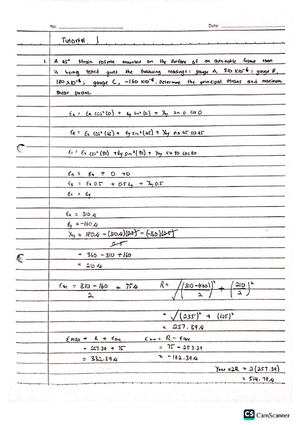 No:
Date:
TUTORIAL 1
1. A 45° strain rosette mounted on the surface of an automobile frame when
is being tested gives the following readings: gauge A, 310 x10⁻⁶; gauge B,
180 x10⁻⁶; gauge C, -160 x10⁻⁶. Determine the principal strains and maximum
shear strain.
εa = εx cos²(0) + εy sin²(0) + γxy sin 0 cos 0
εb = εx cos²(45) + εy sin²(45) + γxy sin 45 cos 45
εc = εx cos²(90) + εy sin²(90) + γxy sin 90 cos 90
εa = εx + 0 + 0
εb = εx 0.5 + 0.5 εy + γxy 0.5
εc = εy
εx = 310 μ
εy = -160 μ
0.5
= 360 - 310 + 160
= 210 μ
εave = 310 - 160 = 75 μ
2
R = √((310-(-160)/2)² + (210/2)²
= √(235)² + (105)²
= 257.39 μ
εmax = R + εave
= 257.39 + 75
= 332.39 μ
= 75 - 257.39
= -182.39 μ
γmax = 2R = 2(257.39)
= 514.78 μ
CS CamScanner